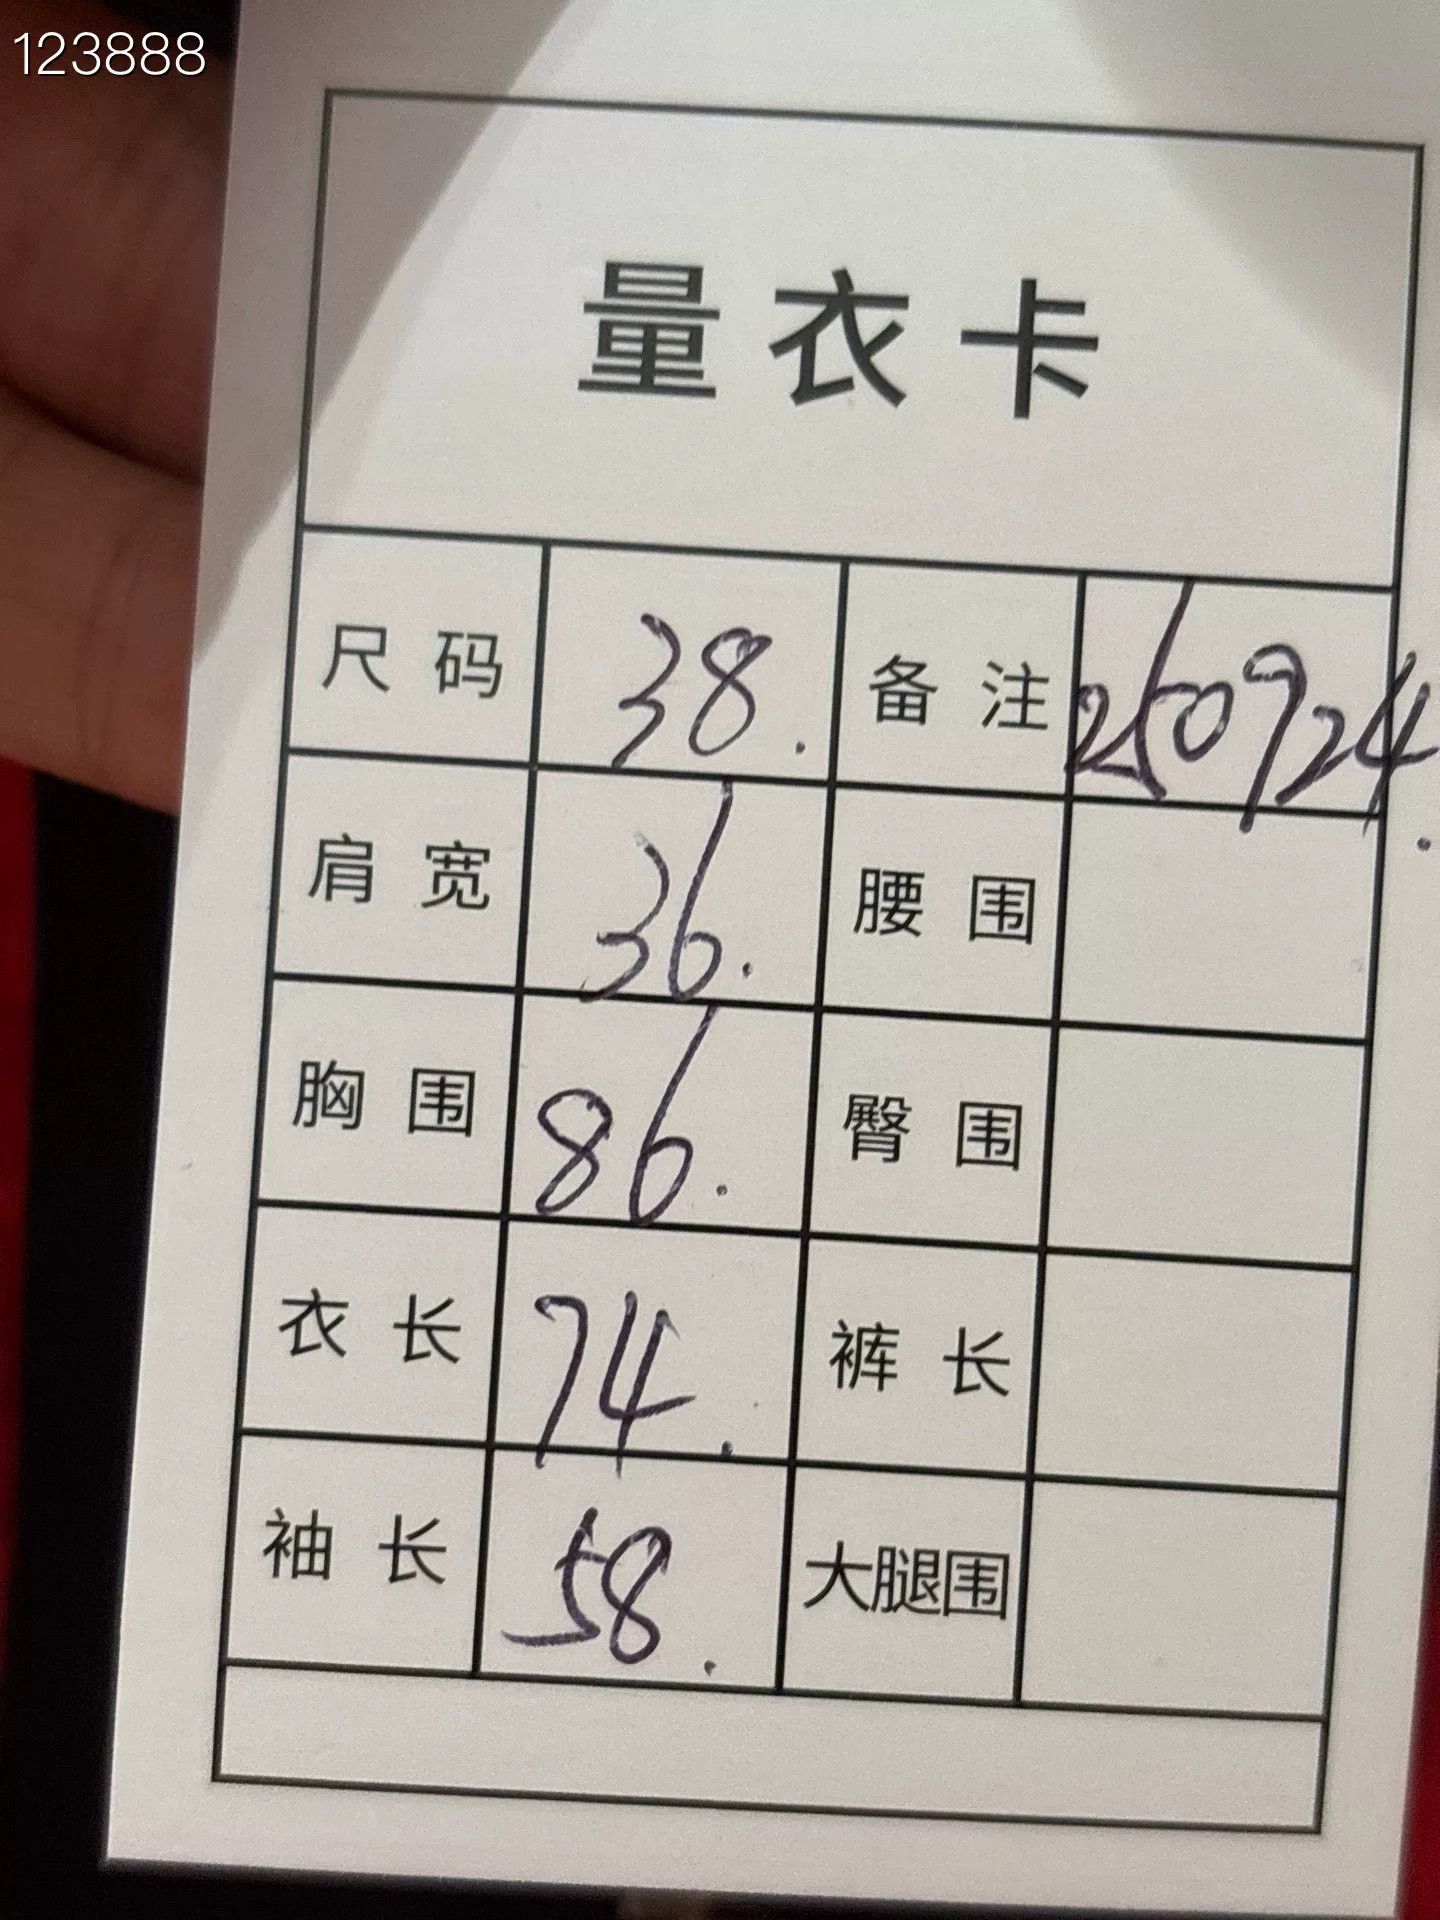 123888
量衣卡
尺码 38. 备注 250924.
肩宽 36. 腰围
胸围 86. 臀围
衣长 74. 裤长
袖长 58. 大腿围